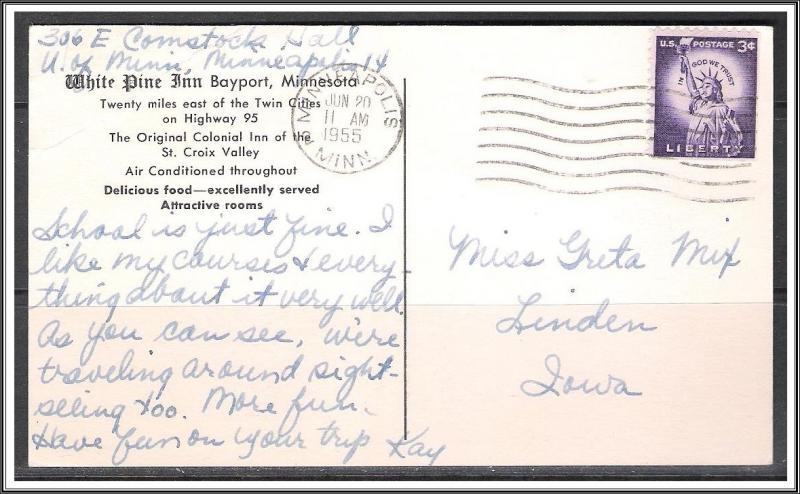 306 E Comstock Hall
U. of Minn, Minneapolis 14
White Pine Inn Bayport, Minnesota
Twenty miles east of the Twin Cities
on Highway 95
The Original Colonial Inn of the
St. Croix Valley
Air Conditioned throughout
Delicious food—excellently served
Attractive rooms
School is just fine. I
like my courses & every-
thing about it very well.
As you can see, we're
traveling around sight-
seeing too. More fun.
Have fun on your trip Kay
MINNEAPOLIS
JUN 20
11 AM
1955
MINN.
U.S. POSTAGE 3¢
IN GOD WE TRUST
LIBERTY
Miss Greta Mix
Linden
Iowa